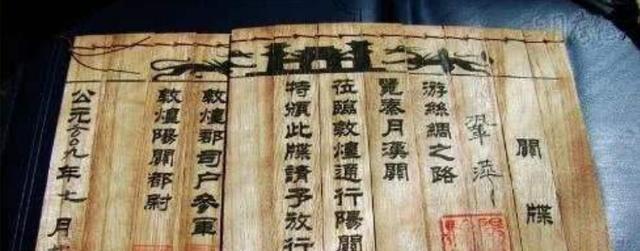 關牒
鞏萍
游絲綢之路
覽秦月漢關
莅臨敦煌通行陽關
特頒此牒請予放行
敦煌郡司户參軍
敦煌陽關都尉
公元二〇〇九年七月